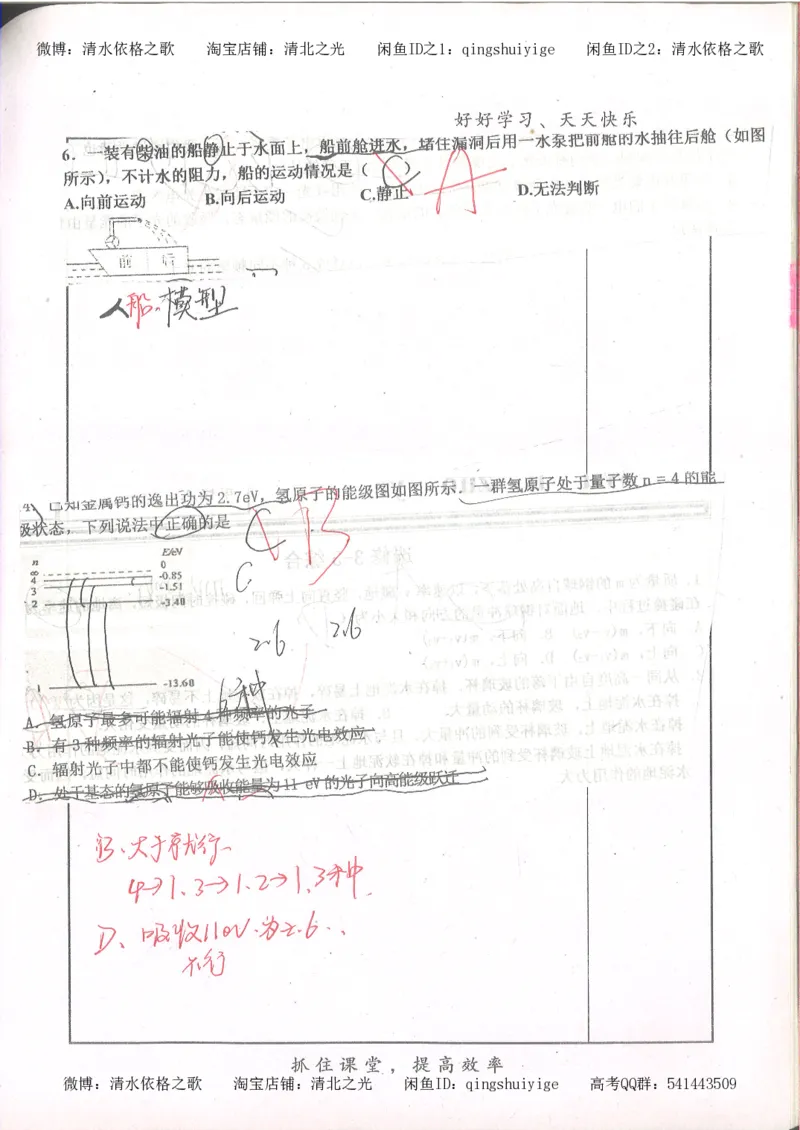 微博：清水依格之歌 淘宝店铺：清北之光 闲鱼ID之1：qingshuiyige 闲鱼ID之2：清水依格之歌
好好学习、天天快乐
6．一装有柴油的船静止于水面上，船前舱进水，堵住漏洞后用一水泵把前舱的水抽往后舱（如图
所示），不计水的阻力，船的运动情况是
A.向前运动 B.向后运动 C.静止 D.无法判断
C A
前 后
人船模型
4、已知金属钙的逸出功为2.7eV，氢原子的能级图如图所示．一群氢原子处于量子数n＝4的能
级状态，下列说法中正确的是
C B
n E/eV
∞ 0
4 -0.85
3 -1.51
2 -3.40
1 -13.60
C
2.6 2.6
6种
A．氢原子最多可能辐射4种频率的光子
B．有3种频率的辐射光子能使钙发生光电效应
C．辐射光子中都不能使钙发生光电效应
D．处于基态的氢原子能够吸收能量为11 eV的光子向高能级跃迁
B、大于就行
4→1、3→1、2→1、3种
D、吸收11eV 为2.6..
不行
抓住课堂，提高效率
微博：清水依格之歌 淘宝店铺：清北之光 闲鱼ID：qingshuiyige 高考QQ群：541443509